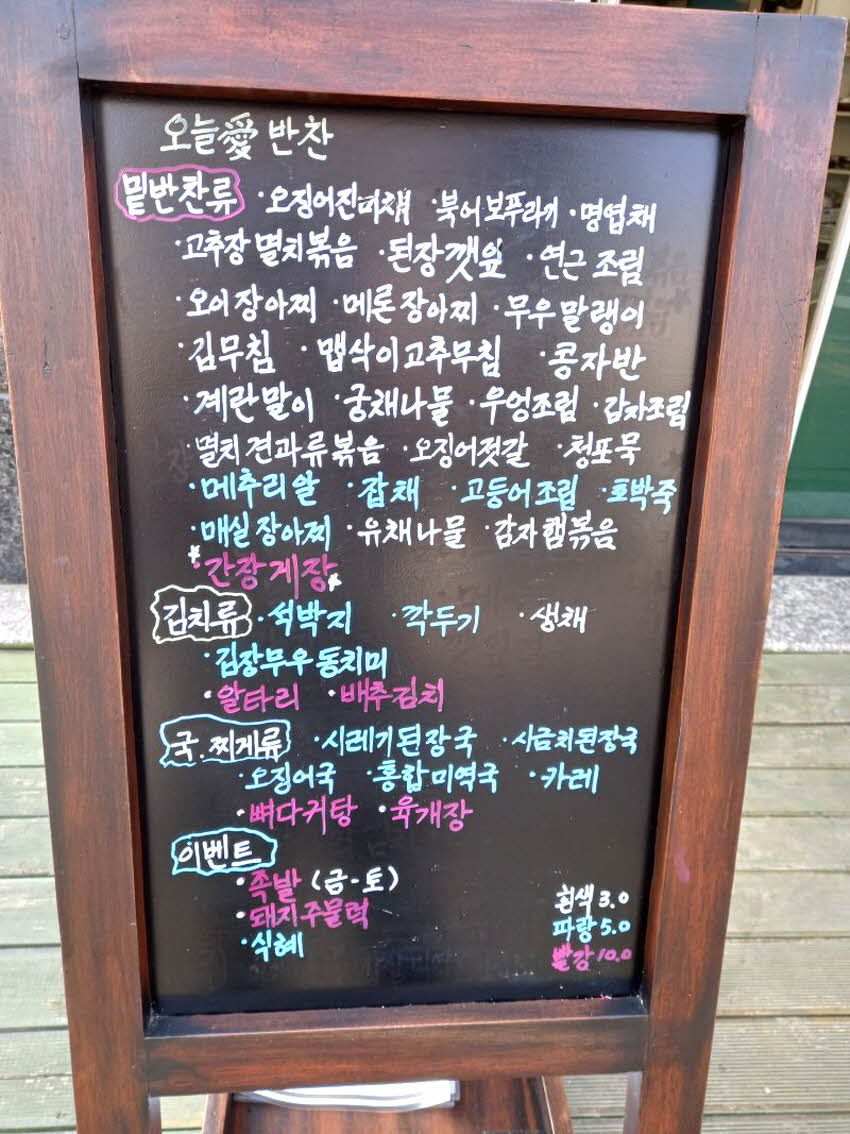 오늘愛 반찬
밑반찬류 ·오징어진미채 ·북어보푸라기 ·명엽채
·고추장멸치볶음 ·된장깻잎 ·연근조림
·오이장아찌 ·메론장아찌 ·무우말랭이
·김무침 ·맵삭이고추무침 ·콩자반
·계란말이 ·궁채나물 ·우엉조림 ·감자조림
·멸치견과류볶음 ·오징어젓갈 ·청포묵
·메추리알 ·잡채 ·고등어조림 ·호박죽
·매실장아찌 ·유채나물 ·감자햄볶음
*·간장게장*
김치류 ·석박지 ·깍두기 ·생채
·김장무우동치미
·알타리 ·배추김치
국.찌게류 ·시레기된장국 ·시금치된장국
·오징어국 ·홍합미역국 ·카레
·뼈다귀탕 ·육개장
이벤트
·족발 (금-토)
·돼지주물럭
·식혜
흰색 3.0
파랑 5.0
빨강 10.0